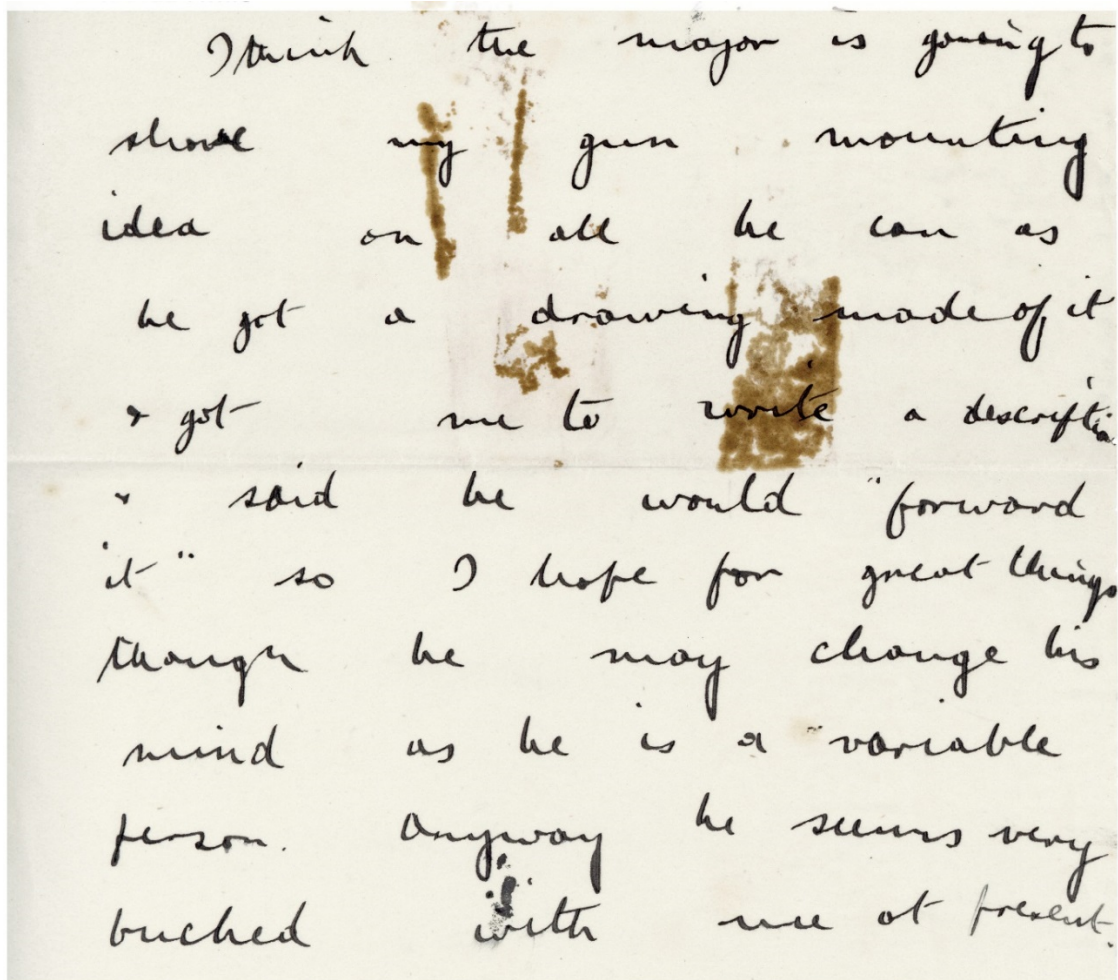 I think the major is going to
shove my gun mounting
idea on all he can as
he got a drawing made of it
& got me to write a descriptio
& said he would "forward
"it" so I hope for great things
though he may change his
mind as he is a variable
person. Anyway he seems very
bucked with me at present.